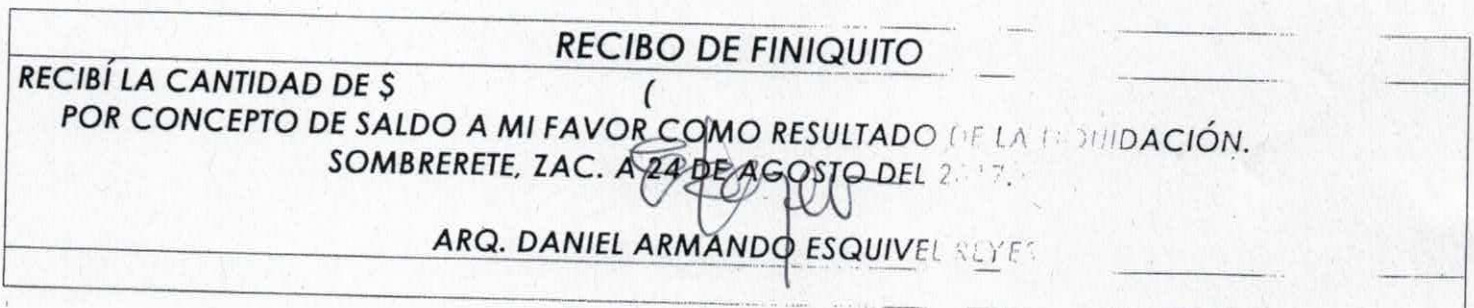 RECIBO DE FINIQUITO
RECIBÍ LA CANTIDAD DE $ (
POR CONCEPTO DE SALDO A MI FAVOR COMO RESULTADO DE LA LIQUIDACIÓN.
SOMBRERETE, ZAC. A 24 DE AGOSTO DEL 2017.
ARQ. DANIEL ARMANDO ESQUIVEL REYES